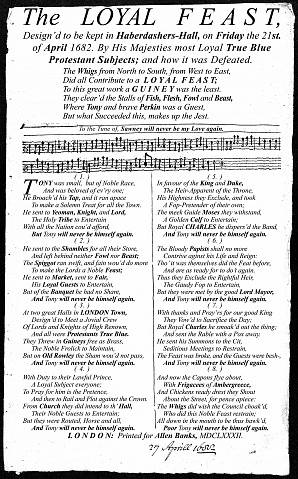 The LOYAL FEAST,
Design'd to be kept in Haberdashers-Hall, on Friday the 21st.
of April 1682. By His Majesties most Loyal True Blue
Protestant Subjects; and how it was Defeated.
The Whigs from North to South, from West to East,
Did all Contribute to a LOYAL FEAST;
To this great work a GUINEY was the least.
They clear'd the Stalls of Fish, Flesh, Fowl and Beast,
Where Tony and brave Perkin was a Guest,
But what Succeeded this, makes up the Jest.
To the Tune of, Sawney will never be my Love again.
( 1. )
TONY was small, but of Noble Race,
And was beloved of ev'ry one;
He Broach'd his Tap, and it ran apace
To make a Solemn Treat for all the Town.
He sent to Yeoman, Knight, and Lord,
The Holy Tribe to Entertain
With all the Nation cou'd afford,
But Tony will never be himself again.
( 2. )
He sent to the Shambles for all their Store,
And left behind neither Fowl nor Beast;
The Spiggot ran swift, and fain wou'd do more
To make the Lords a Noble Feast;
He sent to Market, sent to Fair,
His Loyal Guests to Entertain,
But of the Banquet he had no Share,
And Tony will never be himself again.
( 3. )
At two great Halls in LONDON Town,
Design'd to Meet a Jovial Crew
Of Lords and Knights of High Renown,
And all were Protestants True Blue.
They Threw in Guineys free as Brass,
The Noble Frolick to Maintain,
But an Old Rowley the Sham wou'd not pass,
And Tony will never be himself again.
( 4. )
With Duty to their Lawful Prince,
A Loyal Subject everyone;
To Pray for him is the Pretence,
And then to Rail and Plot against the Crown.
From Church they did intend to th' Hall,
Their Noble Guests to Entertain;
But they were Routed, Horse and all,
And Tony will never be himself again.
( 5. )
In favour of the King and Duke,
The Heir-Apparent of the Throne,
His Highness they Exclude, and took
A Fop-Pretender of their own;
The meek Guide Moses they withstand,
A Golden Calf to Entertain;
But Royal CHARLES he dispers'd the Band,
And Tony will never be himself again.
( 6. )
The Bloody Papists shall no more
Contrive against his Life and Reign:
Tho' it was themselves did the Feat before,
And are as ready for to do't again.
Thus they Exclude the Rightful Heir,
The Gaudy Fop to Entertain,
But they were met by the good Lord Mayor,
And Tony will never be himself again.
( 7. )
With thanks and Pray'rs for our good King
They Vow'd to Sacrifice the Day;
But Royal Charles he smoak'd out the thing;
And sent the Rable with a Pox away.
He sent his Summons to the Cit,
Seditious Meetings to Restrain,
The Feast was broke, and the Guests were besh-,
And Tony will never be himself again.
( 8. )
And now the Capons flye about,
With Fricacees of Ambergreece,
And Chickens ready drest they Shout
About the Street, for pence apiece:
The Whigs did wish the Council choak'd,
Who did this Noble Feast restrain;
All down in the mouth to be thus bawk'd,
Poor Tony will never be himself again.
LONDON: Printed for Allen Banks, MDCLXXXII.
27 Aprill 1682